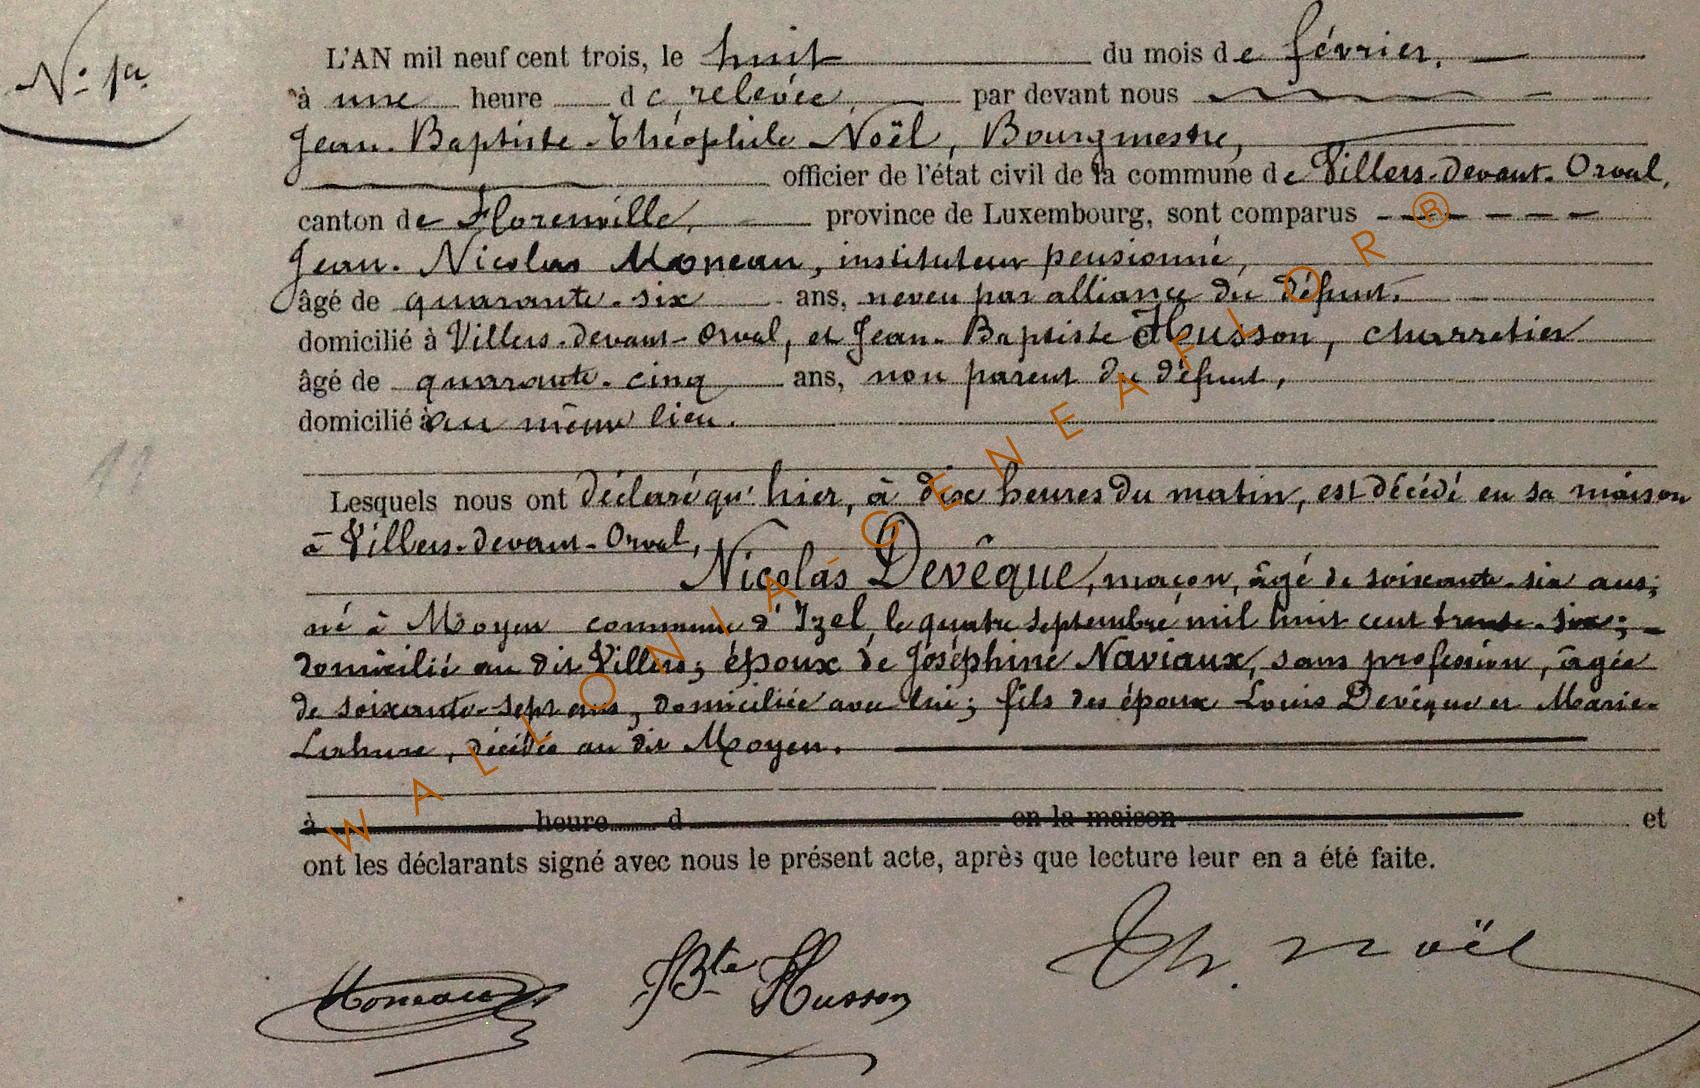 N° 1er
L'AN mil neuf cent trois, le huit du mois de février,
à une heure de relevée, par devant nous
Jean-Baptiste-Théophile Noël, Bourgmestre,
officier de l'état civil de la commune de Villers-devant-Orval,
canton de Florenville, province de Luxembourg, sont comparus
Jean-Nicolas Moneau, instituteur pensionné,
âgé de quarante-six ans, neveu par alliance du défunt,
domicilié à Villers-devant-Orval, et Jean-Baptiste Husson, charretier
âgé de quarante-cinq ans, non parent du défunt,
domicilié à au même lieu.
Lesquels nous ont déclaré qu'hier, à dix heures du matin, est décédé en sa maison
à Villers-devant-Orval,
Nicolas Devêque, maçon, âgé de soixante-six ans,
né à Moyen commune d'Izel, le quatre septembre mil huit cent trente-six;
domicilié au dit Villers; époux de Joséphine Naviaux, sans profession, âgée
de soixante-sept ans, domiciliée avec lui; fils des époux Louis Devêque et Marie-
décédés au dit Moyen.
à heure d en la maison et
ont les déclarants signé avec nous le présent acte, après que lecture leur en a été faite.
Moneau JBte Husson Th. Noël
WALLONIA GENEAFLOR ®